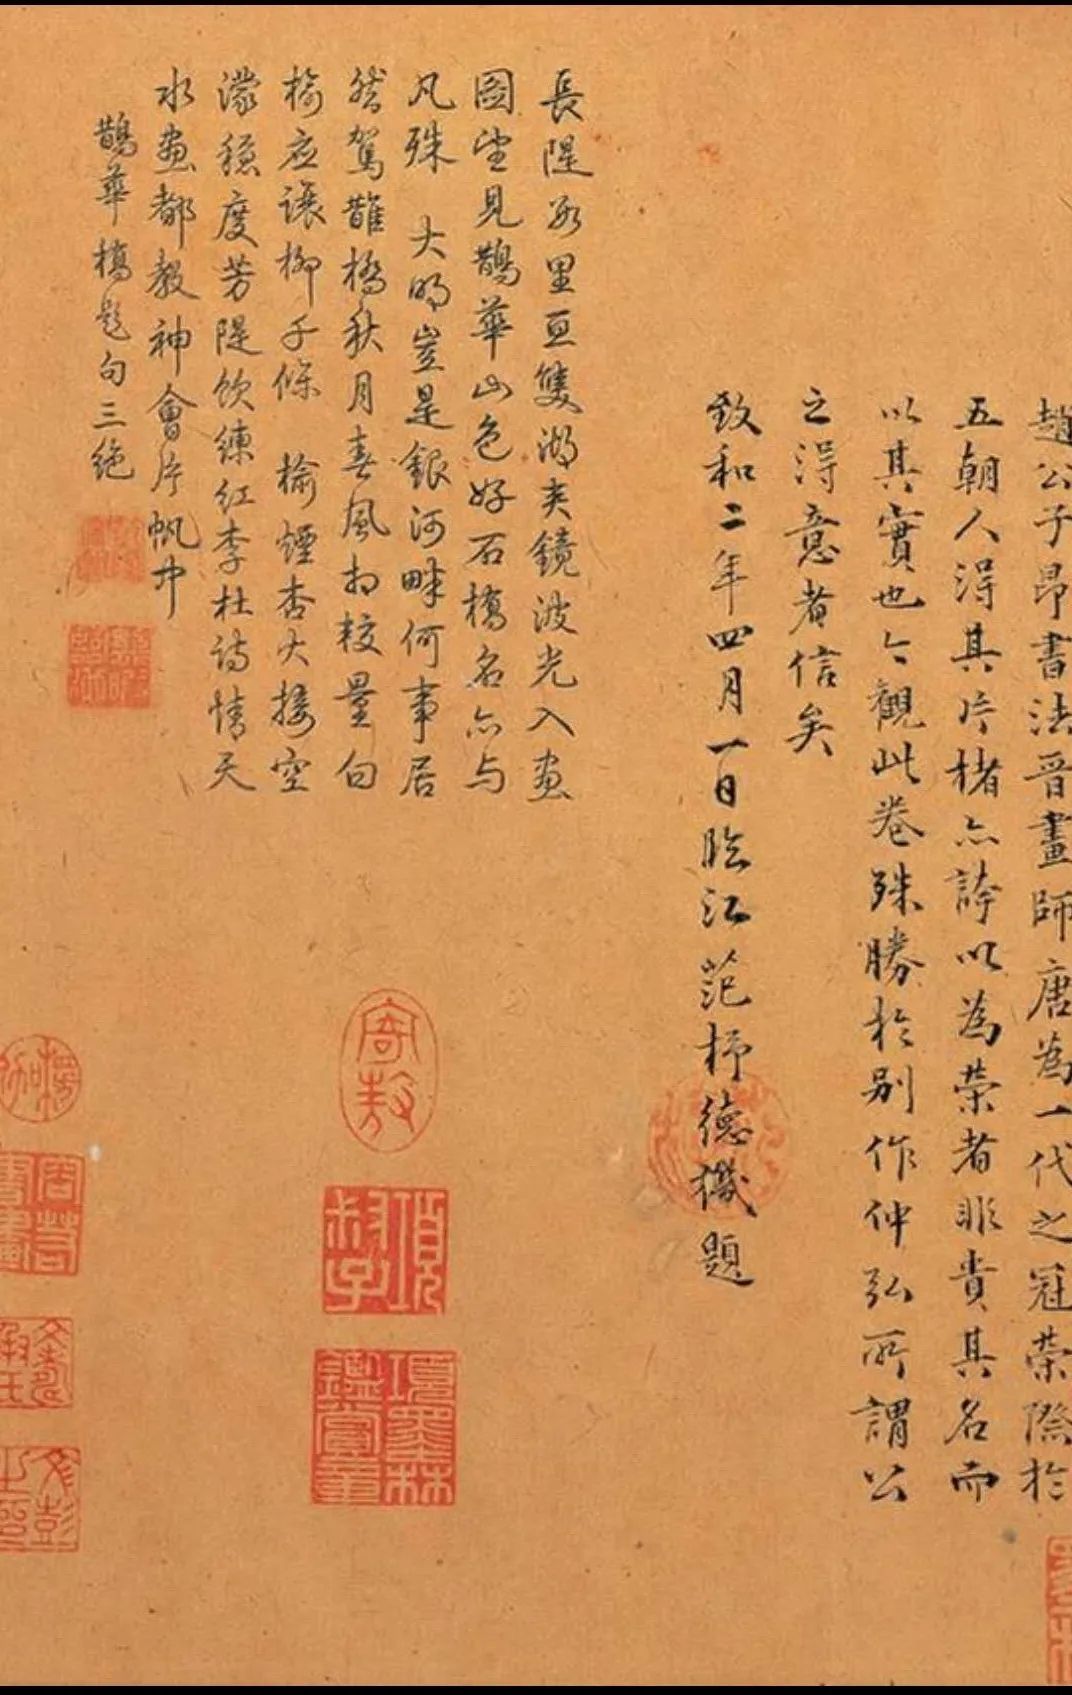 趙公子昂書法晉畫師唐為一代之冠榮際於
五朝人得其片楮亦誇以為榮者非貴其名而
以其實也今觀此卷殊勝於別作仲弘所謂公
之得意者信矣
致和二年四月一日臨江范梈德機題
長隄數里亘雙湖夾鏡波光入畫
圖望見鵲華山色好石橋名亦与
凡殊 大明豈是銀河畔何事居
然駕鵲橋秋月春風相較量白
榆應讓柳千條 榆煙杏火接空
濛穩度芳隄飲練紅李杜詩情天
水畫都教神會片帆中
鵲華橋題句三絕
寄敖
項叔子
項墨林鑑賞章
文壽承氏
文彭之印